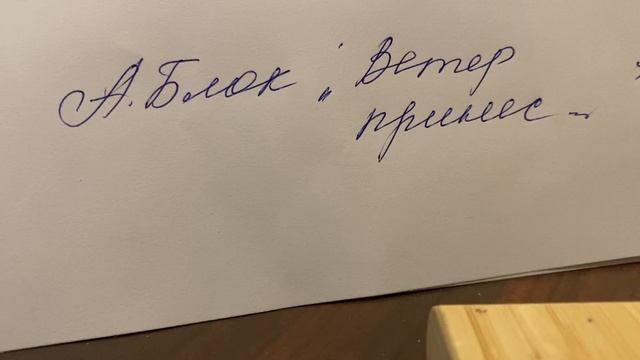 А. Блок „ Ветер
принес -